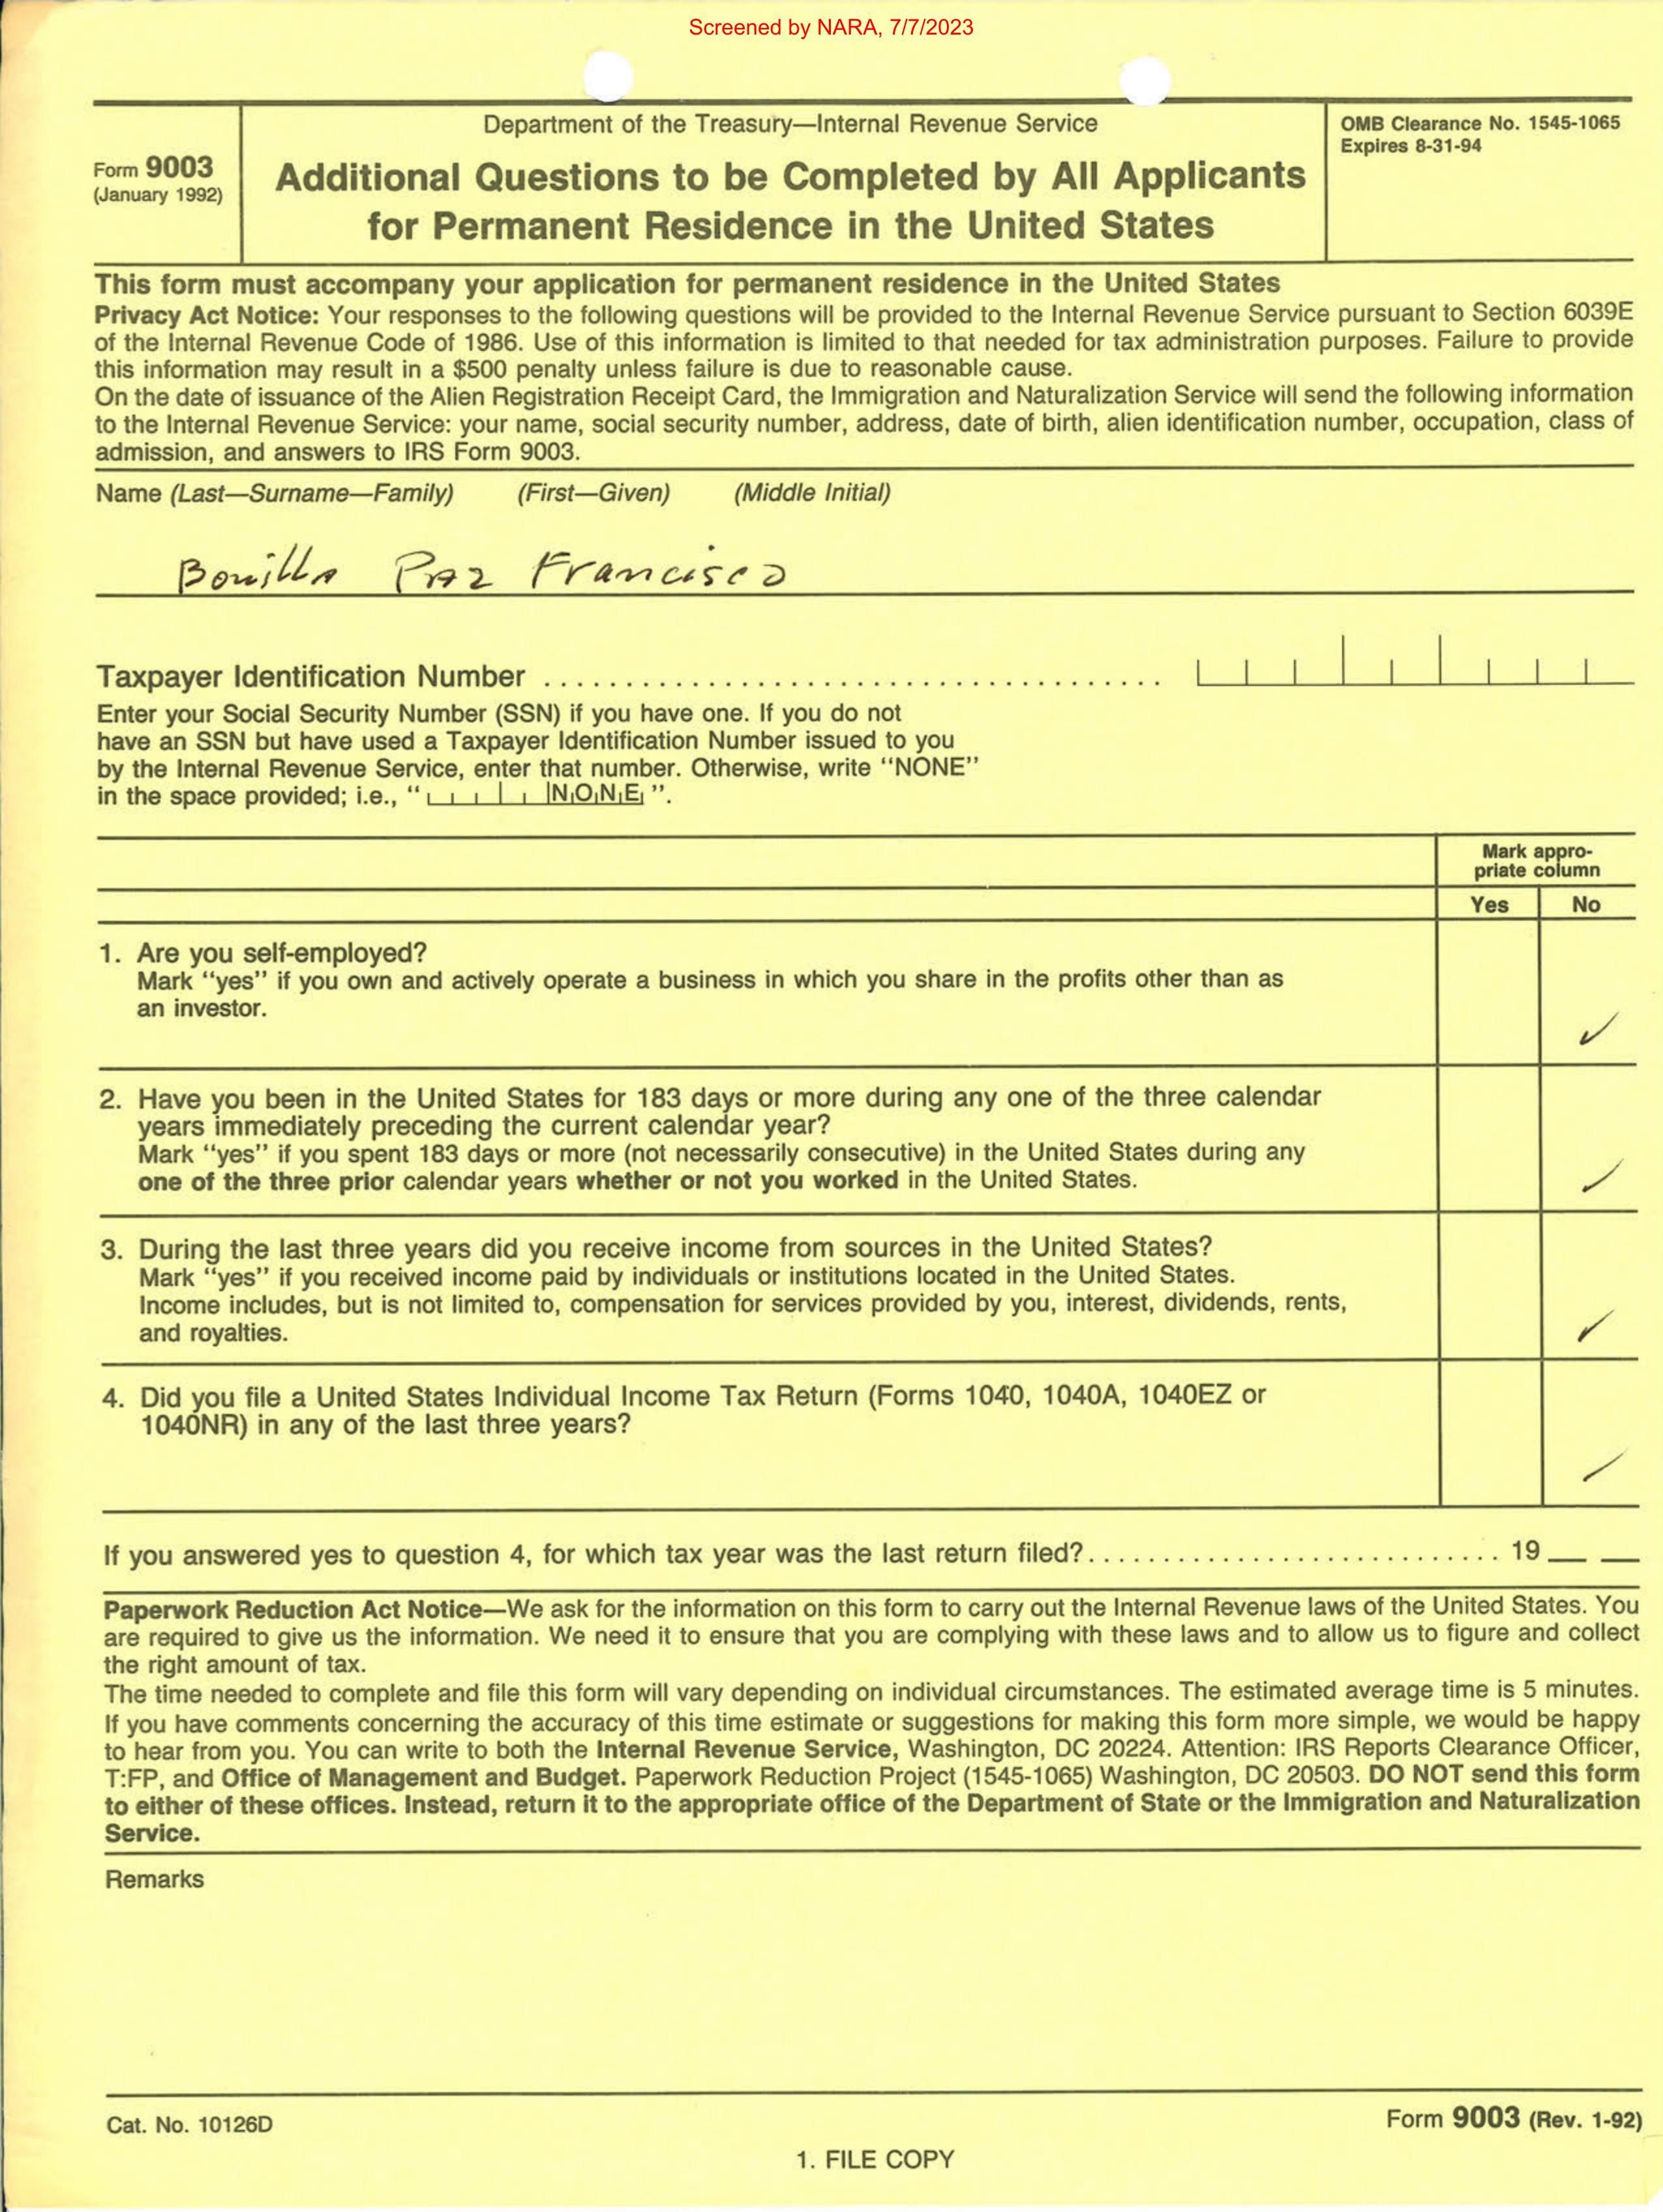 Screened by NARA, 7/7/2023
Form 9003
(January 1992)
Department of the Treasury—Internal Revenue Service
Additional Questions to be Completed by All Applicants
for Permanent Residence in the United States
OMB Clearance No. 1545-1065
Expires 8-31-94
This form must accompany your application for permanent residence in the United States
Privacy Act Notice: Your responses to the following questions will be provided to the Internal Revenue Service pursuant to Section 6039E
of the Internal Revenue Code of 1986. Use of this information is limited to that needed for tax administration purposes. Failure to provide
this information may result in a $500 penalty unless failure is due to reasonable cause.
On the date of issuance of the Alien Registration Receipt Card, the Immigration and Naturalization Service will send the following information
to the Internal Revenue Service: your name, social security number, address, date of birth, alien identification number, occupation, class of
admission, and answers to IRS Form 9003.
Name (Last—Surname—Family) (First—Given) (Middle Initial)
Bonilla Paz Francisco
Taxpayer Identification Number
Enter your Social Security Number (SSN) if you have one. If you do not
have an SSN but have used a Taxpayer Identification Number issued to you
by the Internal Revenue Service, enter that number. Otherwise, write "NONE"
in the space provided; i.e., " NONE ".
Mark appro-
priate column
Yes No
1. Are you self-employed?
Mark "yes" if you own and actively operate a business in which you share in the profits other than as
an investor.
✓
2. Have you been in the United States for 183 days or more during any one of the three calendar
years immediately preceding the current calendar year?
Mark "yes" if you spent 183 days or more (not necessarily consecutive) in the United States during any
one of the three prior calendar years whether or not you worked in the United States.
✓
3. During the last three years did you receive income from sources in the United States?
Mark "yes" if you received income paid by individuals or institutions located in the United States.
Income includes, but is not limited to, compensation for services provided by you, interest, dividends, rents,
and royalties.
✓
4. Did you file a United States Individual Income Tax Return (Forms 1040, 1040A, 1040EZ or
1040NR) in any of the last three years?
✓
If you answered yes to question 4, for which tax year was the last return filed? 19__ __
Paperwork Reduction Act Notice—We ask for the information on this form to carry out the Internal Revenue laws of the United States. You
are required to give us the information. We need it to ensure that you are complying with these laws and to allow us to figure and collect
the right amount of tax.
The time needed to complete and file this form will vary depending on individual circumstances. The estimated average time is 5 minutes.
If you have comments concerning the accuracy of this time estimate or suggestions for making this form more simple, we would be happy
to hear from you. You can write to both the Internal Revenue Service, Washington, DC 20224. Attention: IRS Reports Clearance Officer,
T:FP, and Office of Management and Budget. Paperwork Reduction Project (1545-1065) Washington, DC 20503. DO NOT send this form
to either of these offices. Instead, return it to the appropriate office of the Department of State or the Immigration and Naturalization
Service.
Remarks
Cat. No. 10126D
Form 9003 (Rev. 1-92)
1. FILE COPY